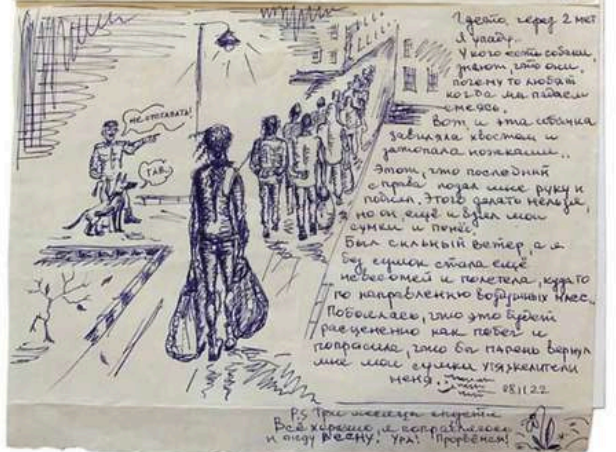 НЕ ОТСТАВАТЬ!
ГАВ.
Где-то, через 2 мет
я упаду..
У кого есть собаки,
знают, что они,
почему то любят
когда мы падаем
смеясь.
Вот и эта собачка
завиляла хвостом и
затопала ножками..
Этот, что последний
справа подал мне руку и
поднял. Этого делать нельзя,
но он, ещё и взял мои
сумки и понёс.
Был сильный ветер, а я
без сумок стала ещё
невесомей и полетела, куда-то
по направлению воздушных масс..
Побоялась, что это будет
расценено как побег и
попросила, что бы парень вернул
мне мои сумки утяжелители
меня.
08.11.22
P.S Три месяца спустя
Всё хорошо, я поправляюсь
и жду ВЕСНУ! Ура! Прорвёмся!